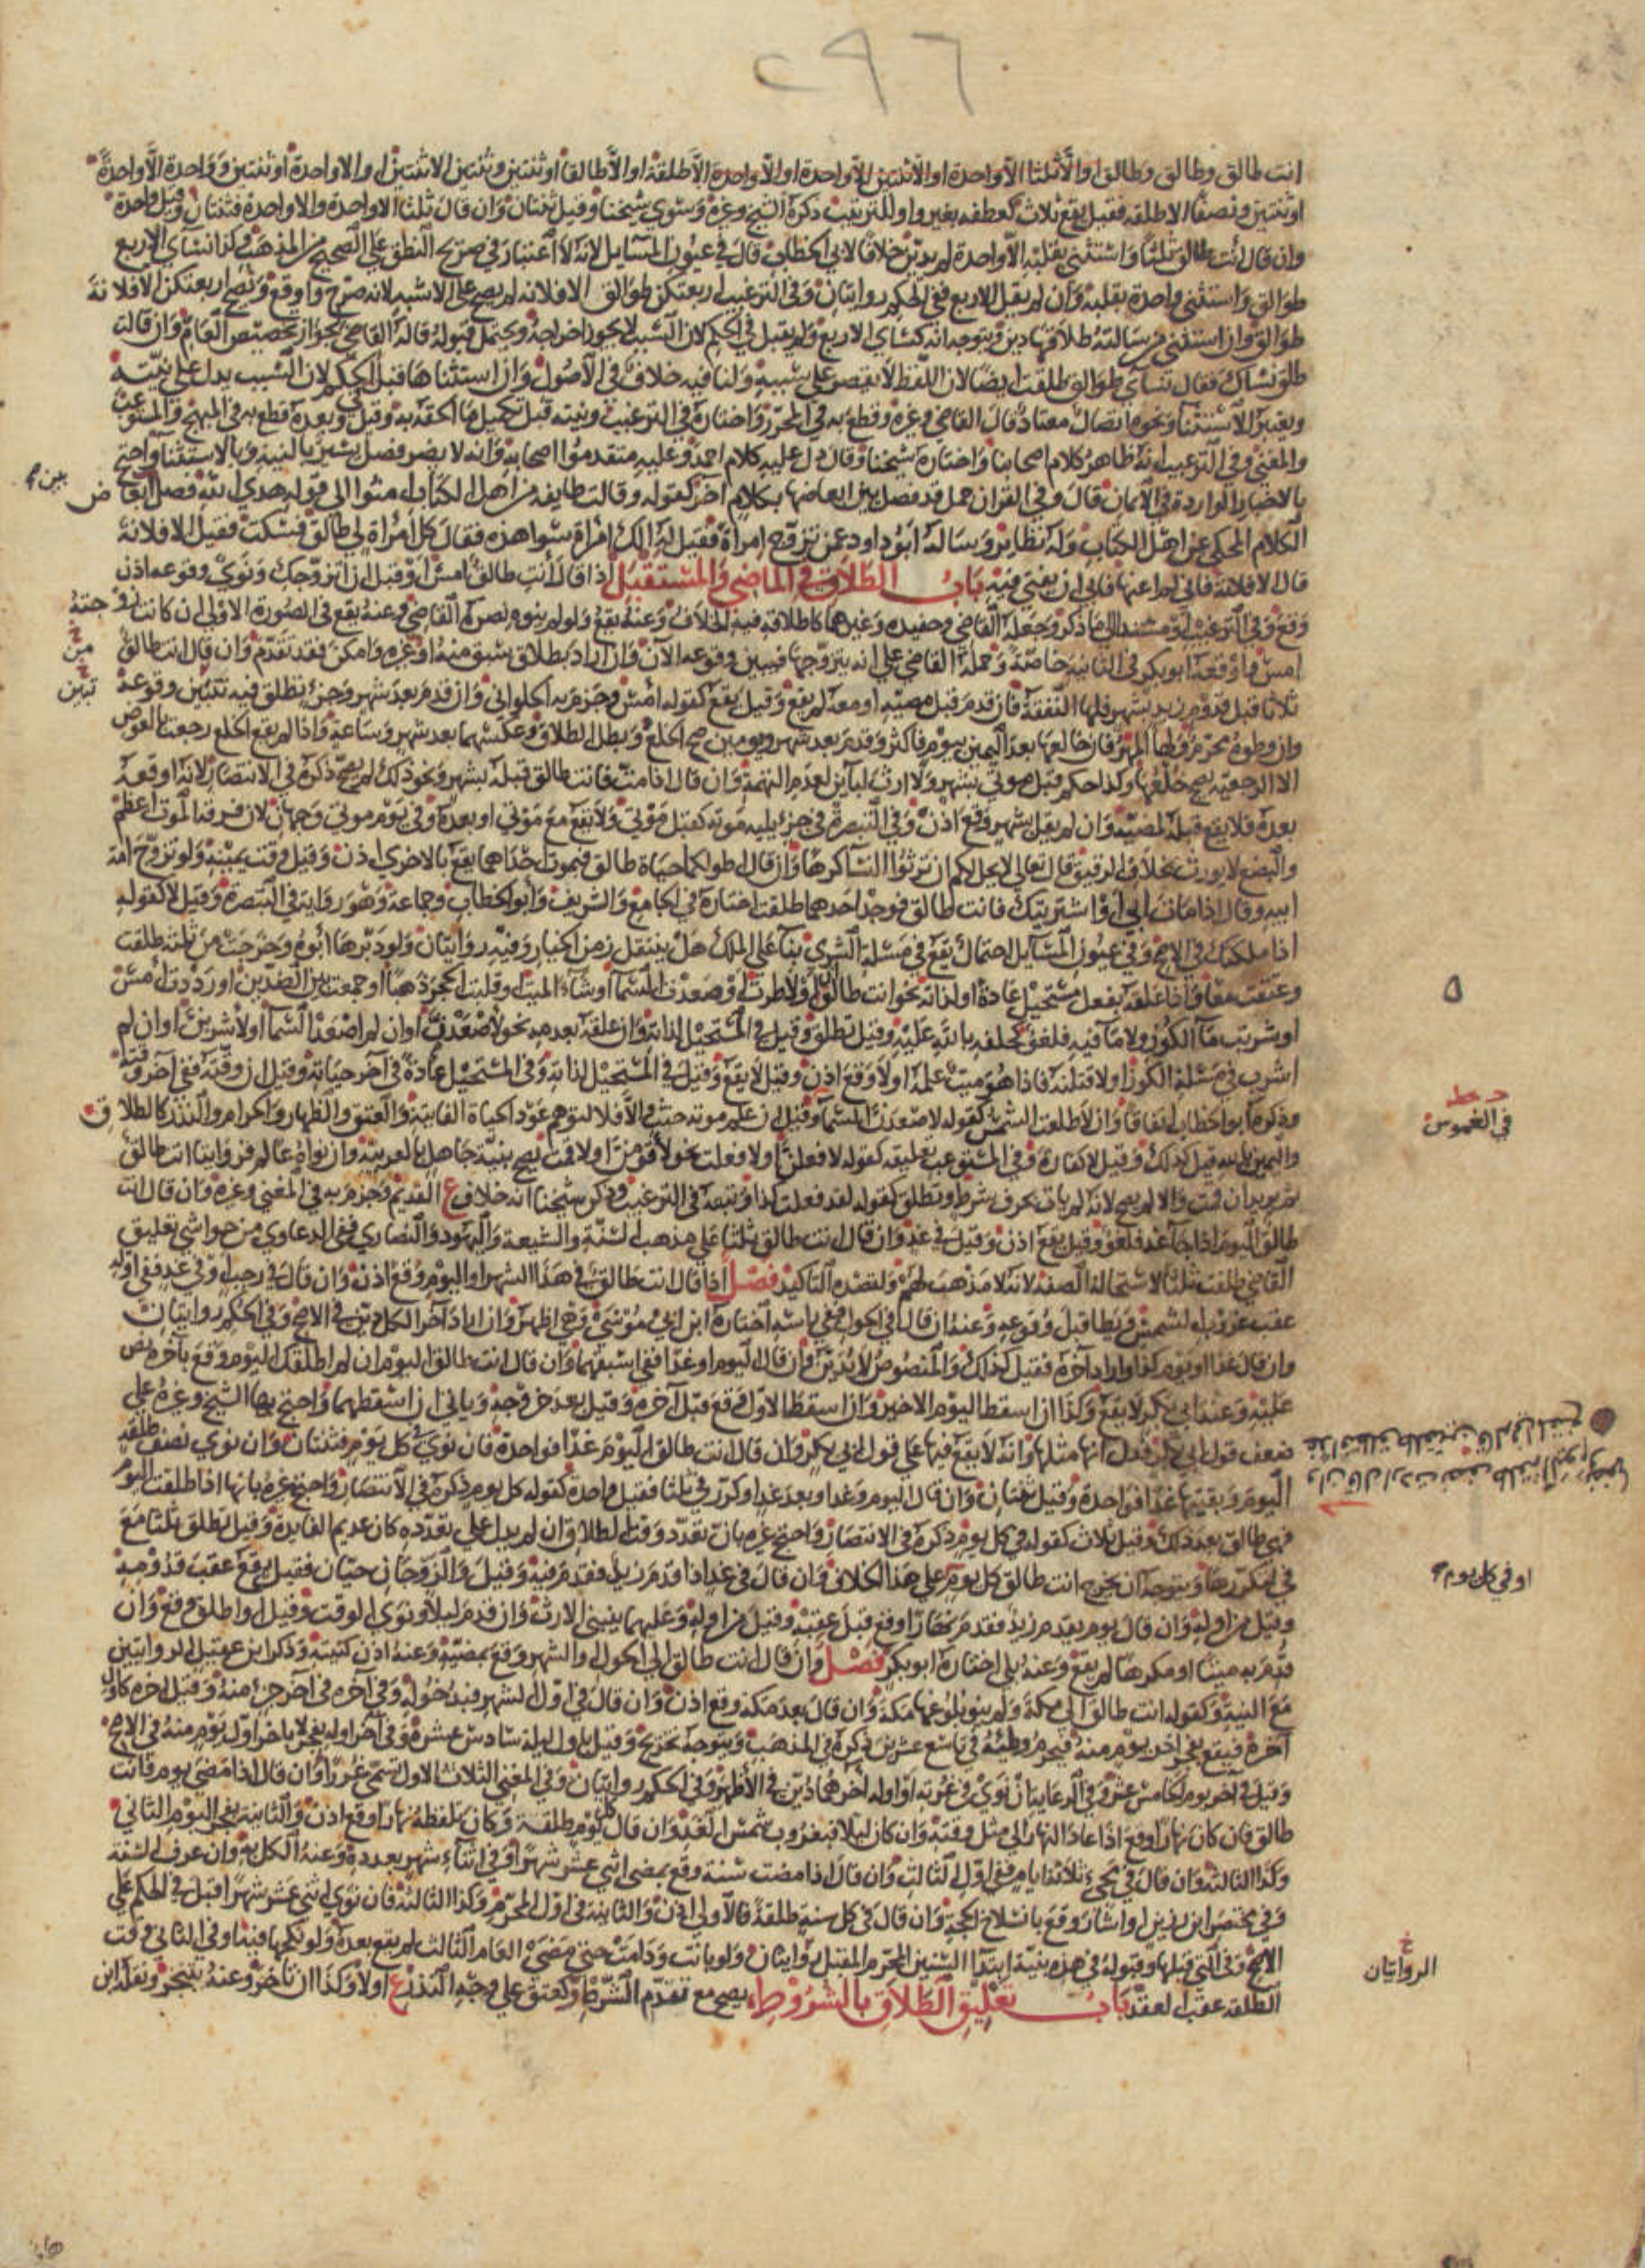 ٢٩٦
انت طالق وطالق وطالق او الا ثلثا الا واحدة او الا ثنتين الا واحدة او الا واحدة الا طلقة او الا طالقا او ثنتين وثنتين الا ثنتين او الا واحدة او ثنتين وواحدة الا واحدة
او ثنتين ونصفا الا طلقة فقيل يقع ثلاث كعطفه بغير واو للترتيب ذكره الشيخ وغيره وسوى شيخنا وقيل ثنتان وان قال ثلثا الا واحدة والا واحدة فثنتان وقيل واحدة
وان قال انت طالق ثلثا واستثنى بقلبه الا واحدة لم يدين خلافا لابي الخطاب قال في عيون المسايل لانه لا اعتبار في صريح النطق على الصحيح من المذهب وكذا نسآي الاربع
طوالق واستثنى واحدة بقلبه وان لم يقل الاربع ففي الحكم روايتان وفي الترغيب اربعتكن طوالق الا فلانة لم يصح على الاشبه لانه صرح واوقع ويصح اربعتكن الا فلانة
طوالق وان استثنى من سالته طلاقها دين ويتوجه انه كنساي الاربع ولم يقبل في الحكم لان السبب لا يجوز اخراجه ويحتمل قبوله قاله القاضي بجواز تخصيص العام وان قالت
طلق نساك فقال نسآي طوالق طلقت ايضا لان اللفظ لا يقصر على سببه ولنا فيه خلاف في الاصول وان استثناها قبل الحكم لان السبب يدل على نيته
ويعتبر للاستثنا ونحوه اتصال معتاد قال القاضي وغيره وقطع به في المحرر واختاره في الترغيب ونيته قبل تكميل ما الحقه به وقيل وبعده قطع به في المبهج والمستوعب
والمغني وفي الترغيب انه ظاهر كلام اصحابنا واختاره شيخنا وقال دل عليه كلام احمد وعليه متقدموا اصحابه وانه لا يضر فصل يسير بالنية وبالاستثنا واحتج
بالاخبار الواردة في الايمان قال وفي القران جمل قد فصل بين ابعاضها بكلام آخر كقوله وقالت طايفة من اهل الكتاب امنوا الى قوله هدى الله فصل ابعاض
بين
الكلام المحكي عن اهل الكتاب وله نظائر وساله ابو داود عمن تزوج امراة فقيل له الك امراة سوا هذه فقال كل امراة لي طالق فسكت فقيل الا فلانة
قال الا فلانة فاني لم اعنها فابى ان يفتي فيه باب الطلاق في الماضي والمستقبل اذا قال انت طالق امس او قبل ان اتزوجك ونوى وقوعه اذن
وقع وفي الترغيب او مستندا الى ما ذكر وجعله القاضي وحفيده وغيرهما كاطلاقه فيه الخلاف وعنه يقع ولو لم ينوه نصره القاضي وعنه يقع في الصورة الاولى ان كانت زوجته
امس واوقعه ابو بكر في الثانية خاصة وحمله القاضي على انه يتزوجها فيبين وقوعه الآن وان اراد بطلاق سبق منه او غيره وامكن فقد تقدم وان قال انت طالق
من
ثلاثا قبل قدوم زيد بشهر فلها النفقة فان قدم قبل مضيه او معه لم يقع وقيل يقع كقوله امس وجزم به الحلواني وان قدم بعد شهر وجزء تطلق فيه تتبين وقوعه
تبين
وان وطوه محرم ولها المهر فان خالعها بعد اليمين بيوم فاكثر وقدم بعد شهر ويومين صح الخلع وبطل الطلاق وعكسهما بعد شهر وساعة واذا لم يقع الخلع رجعت بالعوض
الا الرجعية يصح خلعها وكذا حكم قبل موتي بشهر ولا ارث لباين لعدم التهمة وان قال اذا مت فانت طالق قبله بشهر ونحو ذلك لم يصح ذكره في الانتصار لانه اوقعه
بعده فلا يقع قبله لمضيه وان لم يقل بشهر وقع اذن وفي التبصرة في جزء يليه موته كقبل موتي ولا يقع مع موتي او بعده وفي يوم موتي وجهان لان فرقة الموت اعظم
والبضع لا يورث بخلاف الرقيق قال تعالى لا يحل لكم ان ترثوا النسآ كرها وان قال اطولكما حياة طالق فبموت احداهما يقع بالاخرى اذن وقيل وقت يمينه ولو تزوج امة
ابيه وقال اذا مات ابي او اشتريتك فانت طالق فوجد احدهما طلقت اختاره في الجامع والشريف وابو الخطاب وجماعة وهو رواية في التبصرة وقيل لا كقوله
اذا ملكتك في الاصح وفي عيون المسايل احتمال يقع في مسئلة الشرى بنآ على الملك هل ينتقل زمن الخيار وفيه روايتان ولو دبرها ابوه وخرجت من ثلثه طلقت
وعتقت معا واذا علقه بفعل مستحيل عادة او لذاته نحو انت طالق ان او لا طرت او صعدت السمآ او شاء الميت او قلبت الحجر ذهبا او جمعت بين الضدين او رددت امس
او شربت مآ الكوز ولا مآ فيه فلغو كحلفه بالله عليه وقيل تطلق وقيل في المستحيل لذاته وان علقه بعدمه نحو لاصعدن او ان لم اصعد السمآ او لاشربن او ان لم
اشرب في مسئلة الكوز او لاقتلنه فاذا هو ميت علمه او لا وقع اذن وقيل لا يقع وقيل في المستحيل لذاته وفي المستحيل عادة في آخر حياته وقيل ان وقته ففي آخر وقته
وذكره ابو الخطاب اتفاقا وان لا طلعت الشمس كقوله لاصعدن السمآ وقيل ان علم موته حنث والا فلا لتوهم عود الحياة الفايتة والعتق والظهار والحرام والنذر كالطلاق
د ط
في الغموس
واليمين بالله قيل كذلك وقيل لا كفارة وفي المستوعب تعليقه كقوله لا فعلت او لافعلت نحو لاقومن او لا قمت يصح بنية جاهل بالعربية وان نواه عالم فروايتا انت طالق
ثم يريد ان قمت والا لم يصح لانه لم يات بحرف شرط وتطلق كقوله لقد فعلت كذا وتبعه في الترغيب وذكر شيخنا انه خلاف ع القديم وجزم به في المغني وغيره وان قال انت
طالق اليوم اذا جآ غد فلغو وقيل يقع اذن وقيل في غد وان قال انت طالق ثلثا على مذهب السنة والشيعة واليهود والنصارى ففي الدعاوي من حواشي تعليق
القاضي طلقت ثلثا لاستحالة الصفة لانه لا مذهب لهم ولقصده التاكيد فصل اذا قال انت طالق في هذا الشهر او اليوم وقع اذن وان قال في رجب او في غد ففي اوله
عقب غروب الشمس ويطا قبل وقوعه وعنه ان قال في الحول ففي راسه اختاره ابن ابي موسى وهي اظهر وان اراد آخر الكل دين في الاصح وفي الحكم روايتان
وان قال غدا او يوم كذا واراد آخره فقيل كذلك والمنصوص لا يدين وان قال اليوم او غدا ففي اسبقهما وان قال انت طالق اليوم ان لم اطلقك اليوم وقع بآخره نص
عليه وعند ابي بكر لا يقع وكذا ان اسقط اليوم الاخير وان اسقط الاول وقع قبل آخره وقيل بعد خروجه وياتي ان اسقطهما واحتج بها الشيخ وغيره على
ضعف قول ابي بكر فدل انها مثلها وانه لا يقع فيها على قول ابي بكر وان قال انت طالق اليوم غدا فواحدة فان نوى كل يوم فثنتان وان نوى نصف طلقة
اليوم وبقيتها غدا فواحدة وقيل ثنتان وان قال اليوم وغدا وبعد غد او كرر في ثلثا فقيل واحدة كقوله كل يوم ذكره في الانتصار واحتج غيره بانها اذا طلقت اليوم
فهي طالق بعد ذلك وقيل ثلاث كقوله في كل يوم ذكره في الانتصار واحتج غيره بان تعدد وقت الطلاق ان لم يدل على تعدده كان عديم الفايدة وقيل تطلق ثلثا مع
في لتكررها ويتوجه ان يخرج انت طالق كل يوم على هذا الخلاف وان قال في غد اذا قدم زيد فقدم فيه وقيل والزوجان حيان فقيل يقع عقب قدومه
او في كل يوم
وقيل من اوله وان قال يوم يقدم زيد فقدم نهارا وقع قبل عقبه وقيل من اوله وعليهما ينبني الارث وان قدم ليلا ونوى الوقت وقيل او اطلق وقع وان
قدم به ميتا او مكرها لم يقع وعنه بلى اختاره ابو بكر فصل وان قال انت طالق الى الحول والشهر وقع بمضيه وعنه اذن كنيته وذكر ابن عقيل الروايتين
مع النية وكقوله انت طالق الى مكة ولم ينو بلوغها مكة وان قال بعد مكة وقع اذن وان قال في اول الشهر فبدخوله وفي آخره في آخر جزء منه وقيل اخره كاول
آخره فيقع بفجر اخر يوم منه فيحرم وطئه في تاسع عشرين ذكره في المذهب ويتوجه تخريج وقيل باول ليلة سادس عشره وفي آخر اوله بفجر لا باخر اول يوم منه في الاصح
وقيل في آخر يوم الخامس عشر وفي الرعايتان نوى في غرته او اوله آخرهما دين في الاظهر وفي الحكم روايتان وفي المغني الثلاث الاول تسمى غررا وان قال اذا مضى يوم فانت
طالق فان كان نهارا وقع اذا عاد النهار الى مثل وقته وان كان ليلا فبغروب شمس الغد وان قال كل يوم طلقة وكان تلفظه نهارا وقع اذن والثانية بفجر اليوم الثاني
وكذا الثالثة وان قال في مجيء ثلاثة ايام ففي اول الثالث وان قال اذا مضت سنة وقع بمضي اثني عشر شهرا وفي اثناء شهر بعدده وعنه الكل به وان عرف السنة
وفي مختصر ابن رزين او اشار وقع بانسلاخ الحجة وان قال في كل سنة طلقة فالاولى اذن والثانية في اول المحرم وكذا الثالثة فان نوى اثني عشر شهرا قبل في الحكم على
الاصح وفي التي قبلها وقبوله في هذه بنية ابتدآ السنين المحرم المقبل روايتان ولو بانت ودامت حتى مضى العام الثالث لم يقع بعده ولو نكحها فيها وفي الثاني وقت
الروايتان
الطلقة عقب العقد باب تعليق الطلاق بالشروط يصح مع تقدم الشرط وكعتق على وجه النذر ع اولا وكذا ان تاخر وعنه يتنجز ونقله ابن